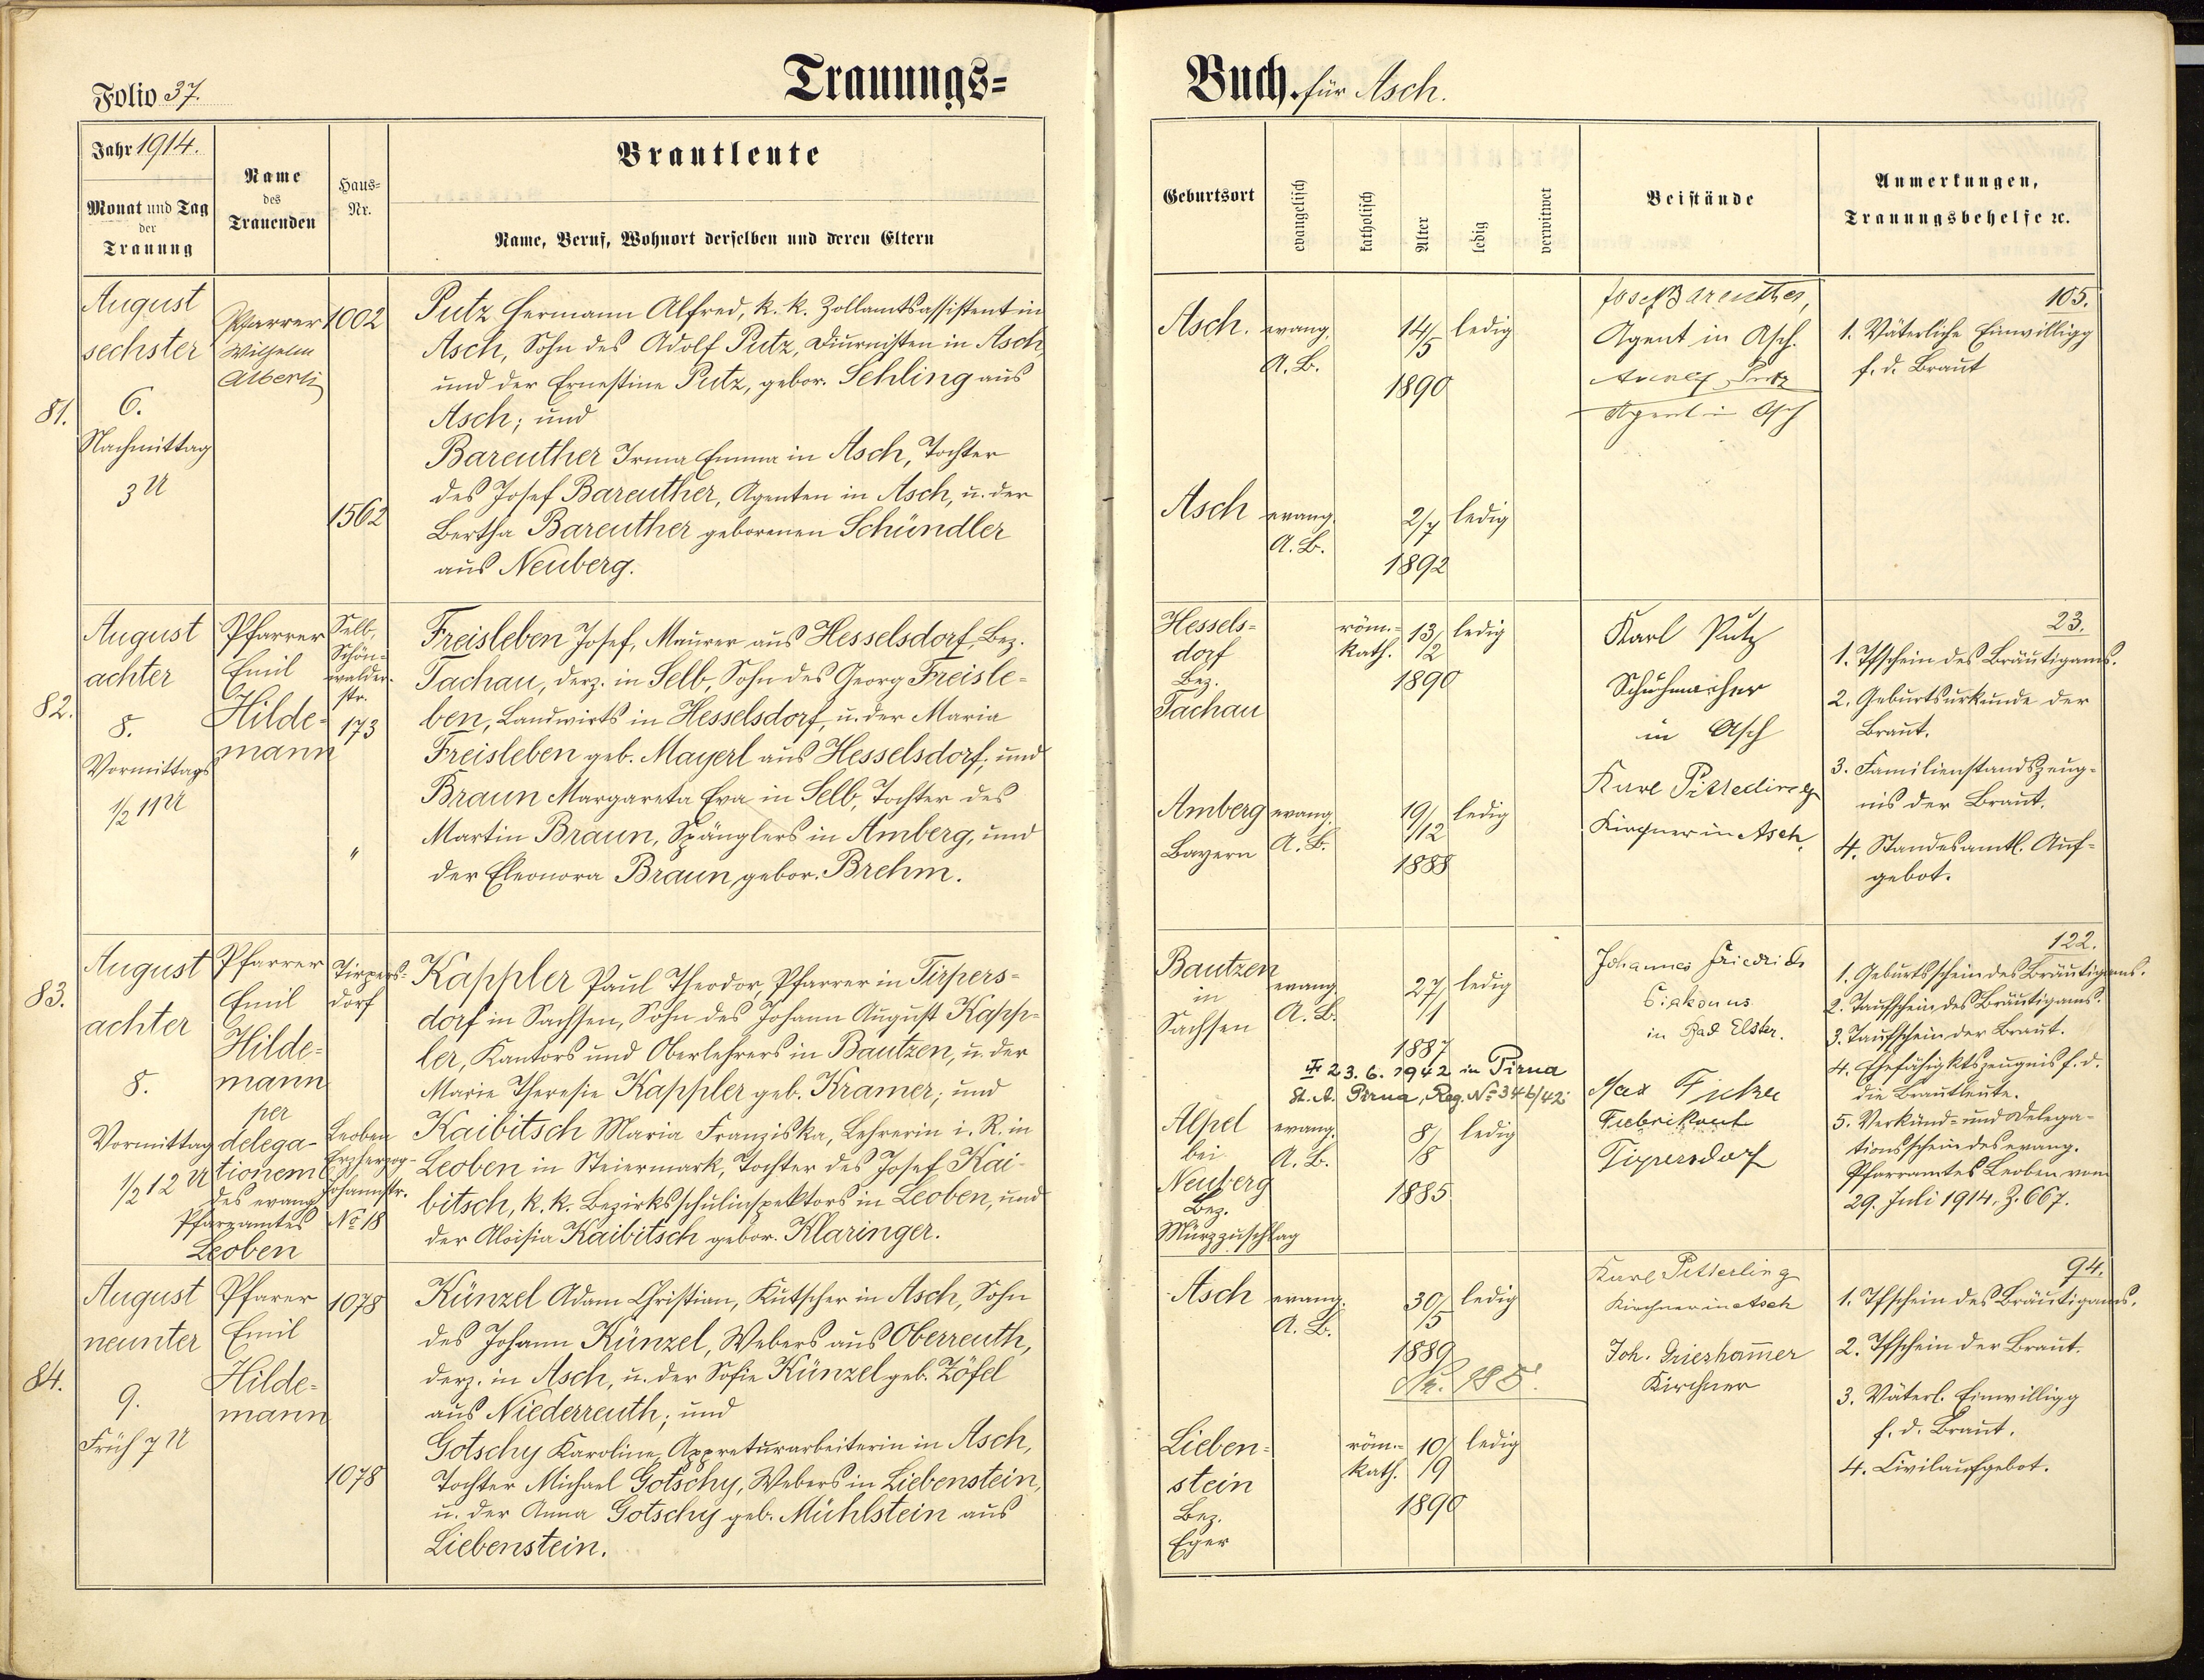 Folio 37.
Trauungs=
Buch. für Asch.
Jahr 1914.
Monat und Tag
der
Trauung
Name
des
Trauenden
Haus=
Nr.
Brautleute
Name, Beruf, Wohnort derselben und deren Eltern
Geburtsort
evangelisch
katholisch
Alter
ledig
verwitwet
Beistände
Anmerkungen,
Trauungsbehelfe ꝛc.
81.
August
sechster
6.
Nachmittag
3 U
Pfarrer
Wilhelm
Alberti
1002
1562
Putz Hermann Alfred, k. k. Zollamtsassistent in
Asch, Sohn des Adolf Putz, Diurnisten in Asch,
und der Ernestine Putz, gebor. Schling aus
Asch; und
Bareuther Irma Emma in Asch, Tochter
des Josef Bareuther, Agenten in Asch, u. der
Bertha Bareuther geborenen Schündler
aus Neuberg.
Asch.
evang.
A. B.
14/5
1890
ledig
Asch
evang.
A. B.
2/7
1892
ledig
Josef Bareuther,
Agent in Asch.
Adolf Putz
Agent in Asch
105.
1. Väterliche Einwilligg
f. d. Braut
82.
August
achter
8.
Vormittags
1/2 11 U
Pfarrer
Emil
Hilde=
mann
Selb,
Schön=
walder=
str.
173
"
Freisleben Josef, Maurer aus Hesselsdorf, Bez.
Tachau, derz. in Selb, Sohn des Georg Freisle=
ben, Landwirts in Hesselsdorf, u. der Maria
Freisleben geb. Mayerl aus Hesselsdorf; und
Braun Margareta Eva in Selb, Tochter des
Martin Braun, Spänglers in Amberg, und
der Eleonora Braun, gebor. Brehm.
Hessels=
dorf
Bez.
Tachau
röm.=
kath.
13/2
1890
ledig
Amberg
Bayern
evang.
A. B.
19/12
1888
ledig
Karl Putz
Schuhmacher
in Asch
Karl Pitterling
Kirchner in Asch.
23.
1. Tfschein des Bräutigams.
2. Geburtsurkunde der
Braut.
3. Familienstandszeug=
nis der Braut.
4. Standesamtl. Auf=
gebot.
83.
August
achter
8.
Vormittag
1/2 12 U
Pfarrer
Emil
Hilde=
mann
per
delega=
tionem
des evang.
Pfarramtes
Leoben
Tirpers=
dorf
Leoben
Erzherzog=
Johannstr.
No 18
Kappler Paul Theodor, Pfarrer in Tirpers=
dorf in Sachsen, Sohn des Johann August Kapp=
ler, Kantors und Oberlehrers in Bautzen, u. der
Marie Theresie Kappler geb. Kramer; und
Kaibitsch Maria Franziska, Lehrerin i. R. in
Leoben in Steiermark, Tochter des Josef Kai=
bitsch, k. k. Bezirksschulinspektors in Leoben, und
der Aloisia Kaibitsch gebor. Klaringer.
Bautzen
in
Sachsen
evang.
A. B.
27/1
1887
ledig
23. 6. 1942 in Pirna
St. A. Pirna, Reg. No 346/42.
Alpel
bei
Neuberg
Bez.
Mürzzuschlag
evang.
A. B.
8/8
1885.
ledig
Johannes Friedrich
Diakonus
in Bad Elster.
Max
Fabrikant
Tirpersdorf
122.
1. Geburtsschein des Bräutigams.
2. Taufschein des Bräutigams.
3. Taufschein der Braut.
4. Ehefähigktszeugnis f. d.
die Brautleute.
5. Verkünd= und Delega=
tionsschein des evang.
Pfarramtes Leoben vom
29. Juli 1914. Z. 667.
84.
August
neunter
9.
Früh 7 U
Pfarer
Emil
Hilde=
mann
1078
1078
Künzel Adam Christian, Kutscher in Asch, Sohn
des Johann Künzel, Webers aus Oberreuth,
derz. in Asch, u. der Sofie Künzel geb. Zöfel
aus Niederreuth; und
Gotschy Karoline, Appreturarbeiterin in Asch,
Tochter Michael Gotschy, Webers in Liebenstein,
u. der Anna Gotschy geb. Mühlstein aus
Liebenstein.
Asch
evang.
A. B.
30/5
1889
ledig
Lieben=
stein
Bez.
Eger
röm.=
kath.
10/9
1890
ledig
Karl Pitterling
Kirchner in Asch
Joh. Grieshammer
Kirchner
94.
1. Tfschein des Bräutigams.
2. Tfschein der Braut.
3. Väterl. Einwilligg
f. d. Braut.
4. Civilaufgebot.